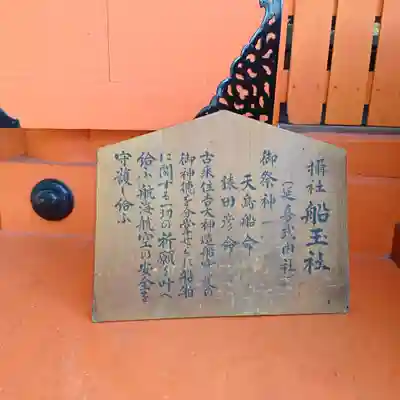 摂社 船玉社
(延喜式内社)
御祭神
天鳥船命
猿田彦命
古来住吉大神造船の
御神徳を分掌せらに船舶
に関する一切の祈願を叶へ
給ふ航海航空の安全を
守護し給ふ